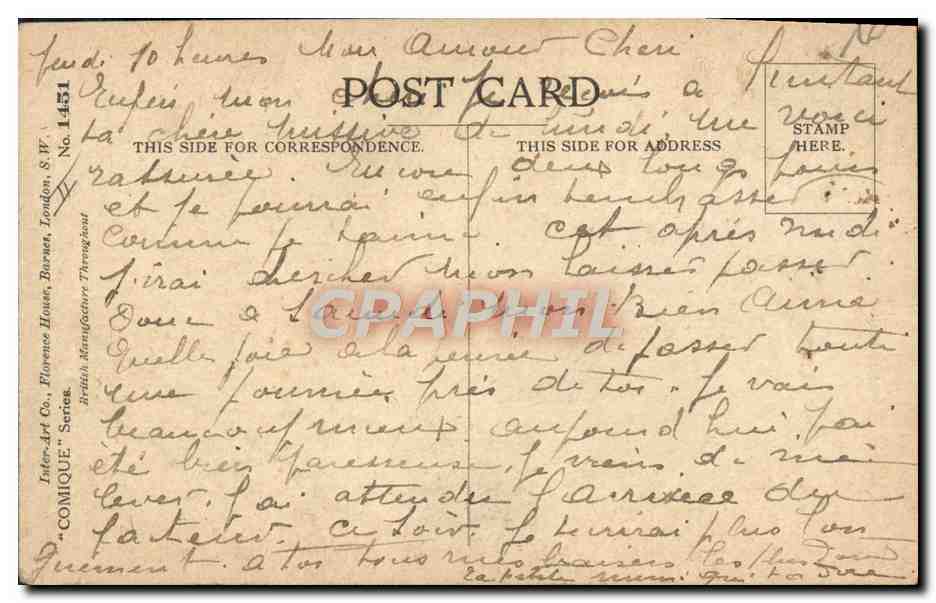 Jeudi 10 heures Mon Amour Cheri
Enfin mon cheri Je reçois a l'instant
ta chère missive de lundi, me voici
rassurée. Encore deux longs jours
et je pourrai enfin t'embrasser
comme je t'aime. Cet après midi
j'irai chercher mon laisser passer.
Donc a samedi mon Bien Aimé
Quelle joie a la pensée de passer toute
une journée près de toi. Je vais
beaucoup mieux aujourd hui. J'ai
été bien paresseuse, je viens de me
lever. J'ai attendu l'arrivée du
facteur. Ce soir je t'ecrirai plus lon
guement. a toi tous mes baisers les plus doux
ta petite mimi qui t'adore
POST CARD
THIS SIDE FOR CORRESPONDENCE.
THIS SIDE FOR ADDRESS
STAMP
HERE.
Inter-Art Co., Florence House, Barnes, London, S.W.
"COMIQUE" Series.
No. 1451
British Manufacture Throughout
CPAPHIL